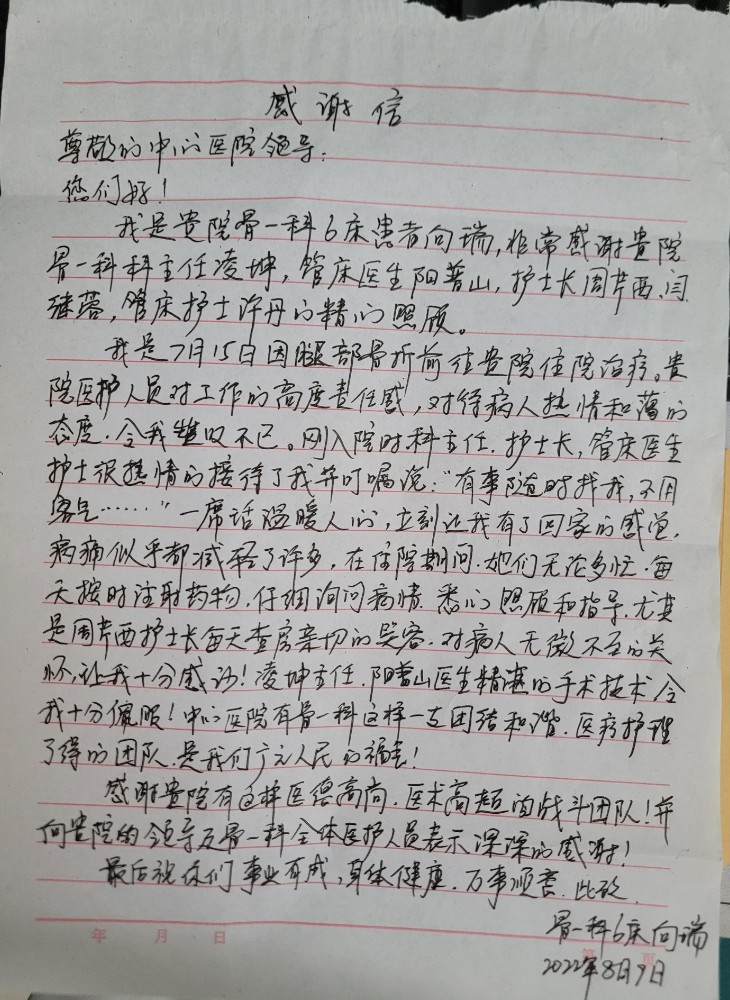 感谢信
尊敬的中心医院领导:
您们好!
我是贵院骨一科6床患者向瑞,非常感谢贵院
骨一科科主任凌坤,管床医生阳普山,护士长周芹西、闫
继蓉,管床护士许丹的精心照顾。
我是7月15日因腿部骨折前往贵院住院治疗。贵
院医护人员对工作的高度责任感,对待病人热情和蔼的
态度,令我难以不已。刚入院时科主任、护士长,管床医生
护士很热情的接待了我并叮嘱说:"有事随时找我,不用
客气……"一席话温暖人心,立刻让我有了回家的感觉,
病痛似乎都减轻了许多,在住院期间,她们无论多忙,每
天按时注射药物,仔细询问病情,悉心照顾和指导,尤其
是周芹西护士长每天查房亲切的笑容,对病人无微不至的关
怀,让我十分感动!凌坤主任、阳普山医生精湛的手术技术令
我十分佩服!中心医院有骨一科这样一支团结和谐,医疗护理
了得的团队,是我们广元人民的福音!
感谢贵院有这样医德高尚,医术高超的战斗团队!并
向贵院的领导及骨一科全体医护人员表示深深的感谢!
最后祝你们事业有成,身体健康,万事顺意。此致
骨一科6床向瑞
2022年8月9日
年 月 日